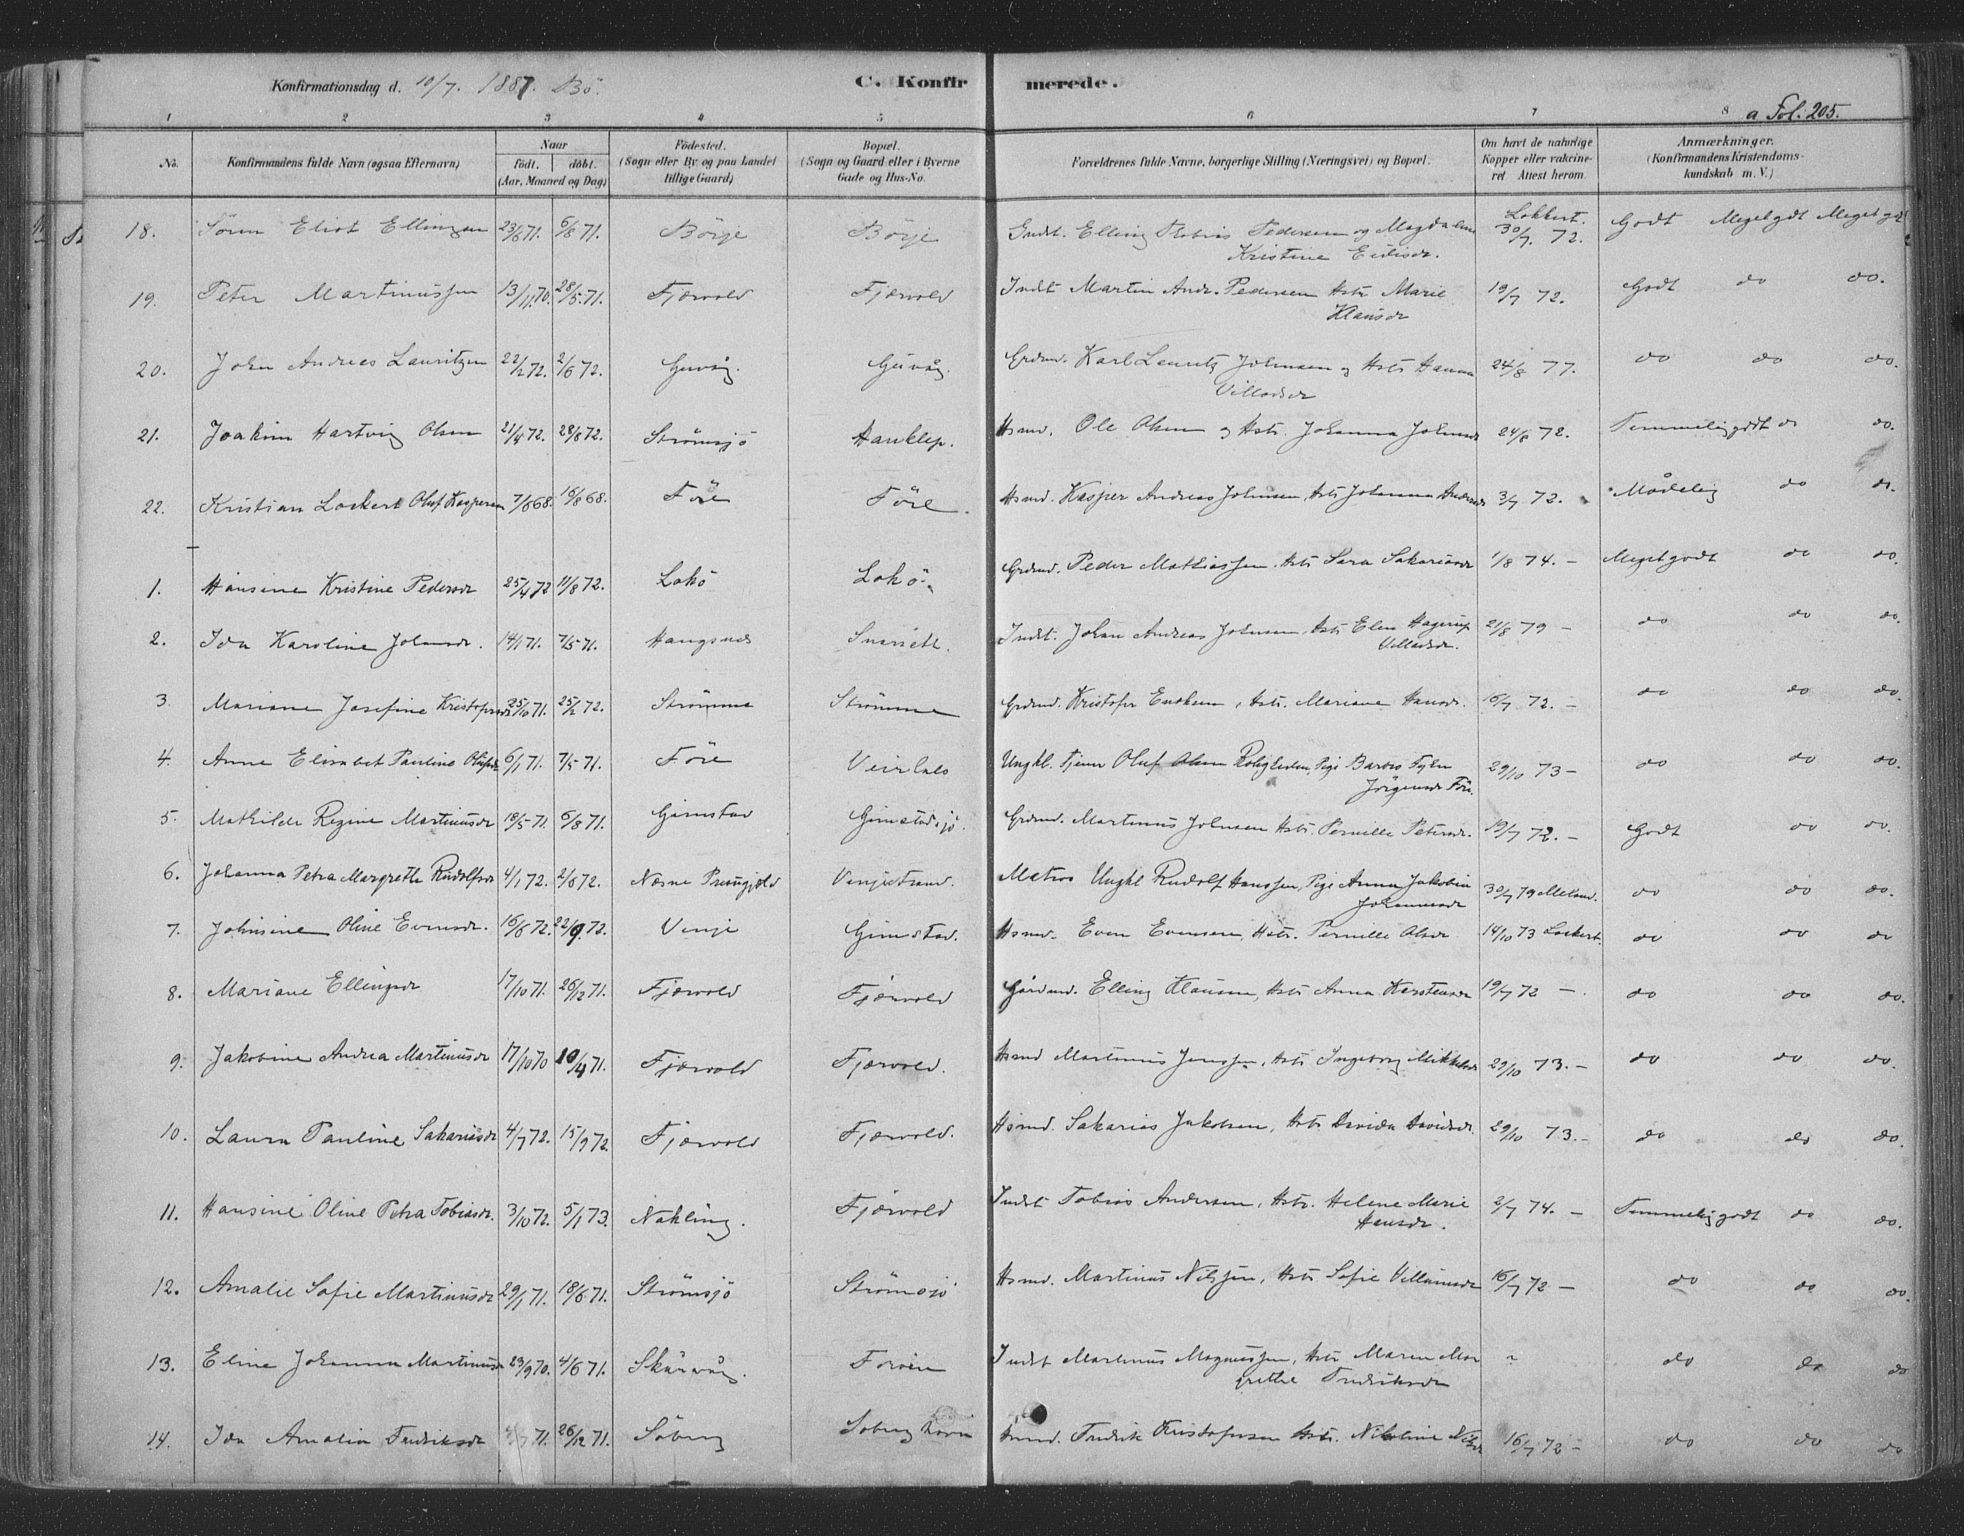 Konfirmationsdag d. 10/7. 1887. Bö. C. Konfirmerede. a Fol. 205.
1 2 3 4 5 6 7 8
No. Konfirmandens fulde Navn (ogsaa Efternavn) Naar födt. döbt. (Aar, Maaned og Dag) Födested. (Sogn eller By og paa Landet tillige Gaard) Bopæl. (Sogn og Gaard eller i Byerne Gade og Hus-No. Forældrenes fulde Navne, borgerlige Stilling (Næringsvei) og Bopæl. Om havt de naturlige Kopper eller vakcineret Attest herom. Anmærkninger. (Konfirmandens Kristendomskundskab m. V.)
18. Sören Eliot Ellingsen 23/6 71. 6/8 71. Börje Börje Indst. Elling Tobias Pedersen og Magdalena Kristine Eidisdr. Lokkert. 30/7. 72. Godt Meget gdt Meget gdt
19. Peter Martinussen 13/11 70. 28/5 71. Fjærvold Fjærvold Indst Martin Andr. Pedersen Hstr Marie Klausdr 19/7 72. Godt do do.
20. Johan Andreas Lauritzen 22/2 72. 2/6 72. Guvåg. Guvåg. Grdmd. Karl Lauritz Johnsen og Hstr Hanna Villadsdr 24/8 77. do do do.
21. Joakim Hartvig Olsen 21/4 72. 28/8 72. Strömsjö Hauklep. Hsmd. Ole Olsen og Hstr. Johanna Johnsdr 24/8 72. Temmelig godt do do.
22. Kristian Lockert Oluf Kaspersen 7/6 68. 16/8 68. Före Före. Hsmd. Kasper Andreas Johnsen, Hstr Johanna Andersdr 3/7 72. Mådelig do do.
1. Hansine Kristine Pedersdr 25/4 72 11/8 72. Lokö Lokö. Grdmd. Peder Mathiassen, Hstr Sara Sakariasdr 1/8 74. – Meget godt do do.
2. Ida Karoline Johansdr. 14/1 71. 7/5 71. Haugsnes Indst. Johan Andreas Johnsen, Hstr Elen Hagerup Villadsdr. 21/8 79 – do do do.
3. Mariane Josefine Kristofersdr 25/10 71. 25/2 72. Strömme Strömme Grdmd. Kristofer Enoksen, Hstr. Mariane Hansdr. 16/7 72. – do do do.
4. Anne Elisabet Pauline Olufsdr 6/1 71. 7/5 71. Före Ungkl. Tjener Oluf Olsen Pige Jörgensdr Före. 29/10 73 – do do do.
5. Mathilde Regine Martinusdr 18/5 71. 6/8 71. Gimstad Gimstadsjö. Grdmd. Martinus Johnsen Hstr. Pernille Petersdr. 19/7 72. – Godt do do.
6. Johanna Petra Margrethe Rudolfsdr 4/1 72. 2/6 72. Næsne Prestegjeld Vinjestrand. Matros Ungkl Rudolf Hanssen, Pige Anna Jakobine Johannesdr 30/7 79 do do do.
7. Johnsine Oline Evensdr. 16/6 72. 22/9. 72. Vinje Gimstad. Hsmd. Even Evensen, Hstr. Pernille Olsdr 14/10 73 Lockert. do do do
8. Mariane Ellingsdr 17/10 71. 26/12 71. Fjærvold Fjærvold Gårdmd. Elling Klausen, Hstr Anna Kerstensdr 19/7 72 – do do do.
9. Jakobine Andrea Martinusdr 17/10 70 10/4 71. Fjærvold Fjærvold. Hsmd Martinus Jenssen, Hstr Ingeborg Mikkelsdr 29/10 73. – do do do.
10. Laura Pauline Sakariasdr 4/7 72. 15/9 72. Fjærvold Fjærvold. Hsmd. Sakarias Jakobsen, Hstr Davida Davidsdr. 29/10 73. – do do do.
11. Hansine Oline Petra Tobiasdr. 3/10 72. 5/1 73. Nykling. Fjærvold Indst Tobias Andersen, Hstr. Helene Marie Hansdr. 2/7 74. – Temmelig godt do do.
12. Amalie Sofie Martinusdr 29/1 71. 18/6 71. Strömsjö Strömsjö Hsmd. Martinus Nilssen, Hstr Sofie Villumsdr 16/7 72 – do do do.
13. Eline Johanna Martinusdr 23/9 70. 4/6 71. Skårvåg. Indst Martinus Magnussen, Hstr Maren Margrethe Fredriksdr do do do
14. Ida Amalia Fredriksdr 71. 26/12 71. Söberg Fredrik Kristofersen Hstr. Nikoline Nilsdr 16/7 72 – do do do